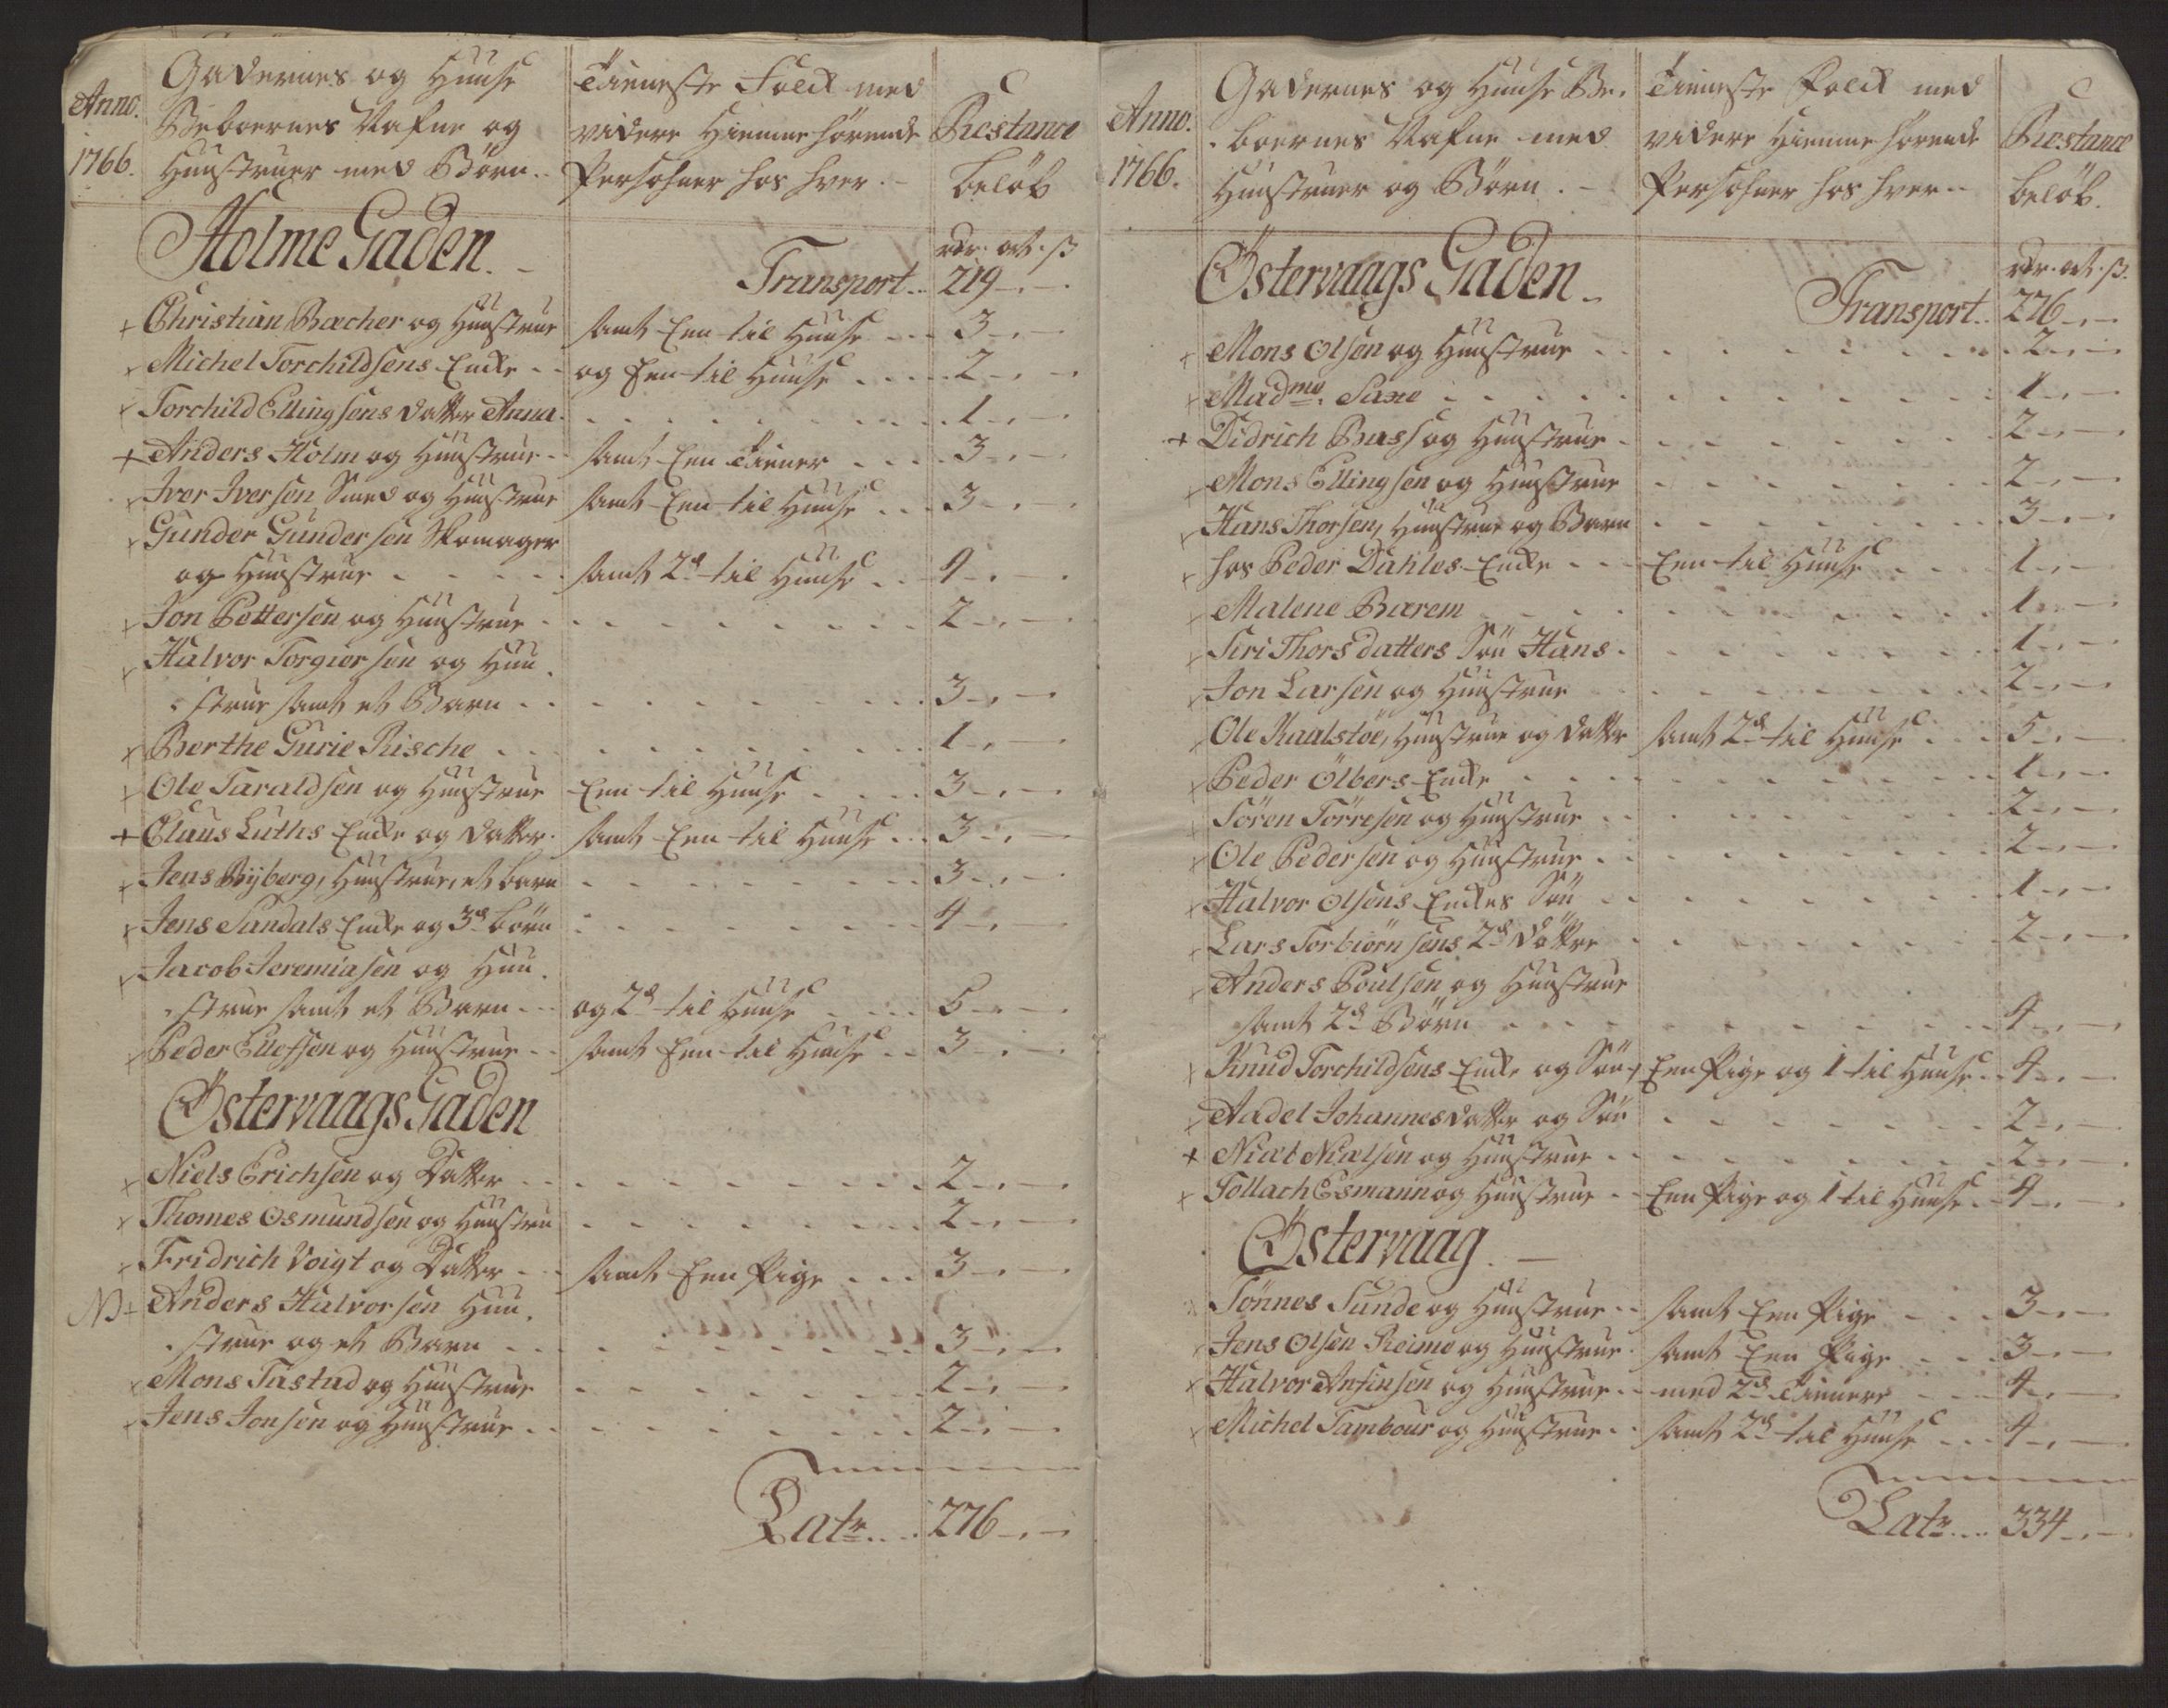 Anno.
1766.
Gadernes og Huuse
Beboernes Nafne og
Huustruer med Börn.
Tieneste Folck med
videre Hiemme hörende
Persohner hos hver.
Restance
Belöb
Holme Gaden.
rdr. ort. ß
Transport.. 219 -.-
+ Christian Bæcher og Huustrue samt Een til Huuse ... 3 -.-
+ Michel Torchildsens Encke .. og Een til Huuse .... 2 -.-
+ Torchild Ellingsens datter Anna. . . . . 1 -.-
+ Anders Holm og Huustrue .. samt Een Tiener ... 3 -.-
+ Iver Iversen Smed og Huustrue samt Een til Huuse ... 3 -.-
+ Gunder Gundersen Skomager
og Huustrue .... samt 2de til Huuse .. 4 -.-
+ Jon Pettersen og Huustrue . . . . 2 -.-
+ Halvor Torgiersen og Huu-
strue samt et Barn . . . . 3 -.-
+ Berthe Gurie Rische . . . . 1 -.-
+ Ole Taraldsen og Huustrue Een til Huuse .... 3 -.-
+ Claus Luths Encke og datter. samt Een til Huuse ... 3 -.-
+ Jens Ryberg, Huustrue, et barn . . . . 3 -.-
+ Jens Sandals Encke og 3de börn . . . . 4 -.-
+ Jacob Jeremiasen og Huu-
strue samt et Barn ... og 2de til Huuse .... 5 -.-
+ Peder Ellefsen og Huustrue .. samt Een til Huuse .. 3 -.-
Östervaags Gaden
+ Niels Erichsen og Datter . . . . 2 -.-
+ Thomes Osmundsen og Huustru . . . . 2 -.-
+ Fridrich Voigt og Datter ... samt Een Pige ... 3 -.-
NB + Anders Halvorsen Huu-
strue og et Barn . . . . 3 -.-
+ Mons Tastad og Huustrue . . . . 2 -.-
+ Jens Jonsen og Huustrue . . . . 2 -.-
Latr.... 276 -.-
Anno.
1766.
Gadernes og Huuse Be-
boernes Nafne med
Huustruer og Börn. -
Tieneste Folck med
videre Hiemme hörende
Persohner hos hver..
Restance
Belöb.
Östervaags Gaden.
rdr. ort. ß.
Transport.. 276 -.-
+ Mons Olsen og Huustrue . . . . 2 -.-
+ Madme. Saxe . . . . 1 -.-
+ Didrich Buss og Huustrue . . . . 2 -.-
+ Mons Ellingsen og Huustrue . . . . 2 -.-
+ Hans Thorsen, Huustrue og Barn . . . . 3 -.-
+ hos Peder Dahles Encke ... Een til Huuse ... 1 -.-
+ Malene Barem . . . . 1 -.-
+ Siri Thorsdatters Sön Hans . . . . 1 -.-
+ Jon Larsen og Huustrue . . . . 2 -.-
+ Ole Kaalstöe, Huustrue og datter samt 2de til Huuse ... 5 -.-
+ Peder Ölbers Encke . . . . 1 -.-
+ Sören Törresen og Huustrue . . . . 2 -.-
+ Ole Pedersen og Huustrue . . . . 2 -.-
+ Halvor Olsens Enckes Sön . . . . 1 -.-
+ Lars Torbiörnsens 2de Döttre . . . . 2 -.-
+ Anders Poulsen og Huustrue
samt 2de Börn . . . . 4 -.-
+ Knud Torchildsens Encke og Sön, Een Pige og 1 til Huuse .. 4 -.-
+ Aadel Johannesdatter og Sön . . . . 2 -.-
+ Niæl Niælsen og Huustrue . . . . 2 -.-
+ Tollach Esmann og Huustrue .. Een Pige og 1 til Huuse .. 4 -.-
Östervaag. -
+ Tönnes Sunde og Huustrue .. samt Een Pige ... 3 -.-
+ Jens Olsen Reime og Huustrue . samt Een Pige ... 3 -.-
+ Halvor Anfinsen og Huustrue .. med 2de Tienere ... 4 -.-
+ Michel Tambour og Huustrue .. samt 2de til Huuse ... 4 -.-
Latr.... 334 -.-